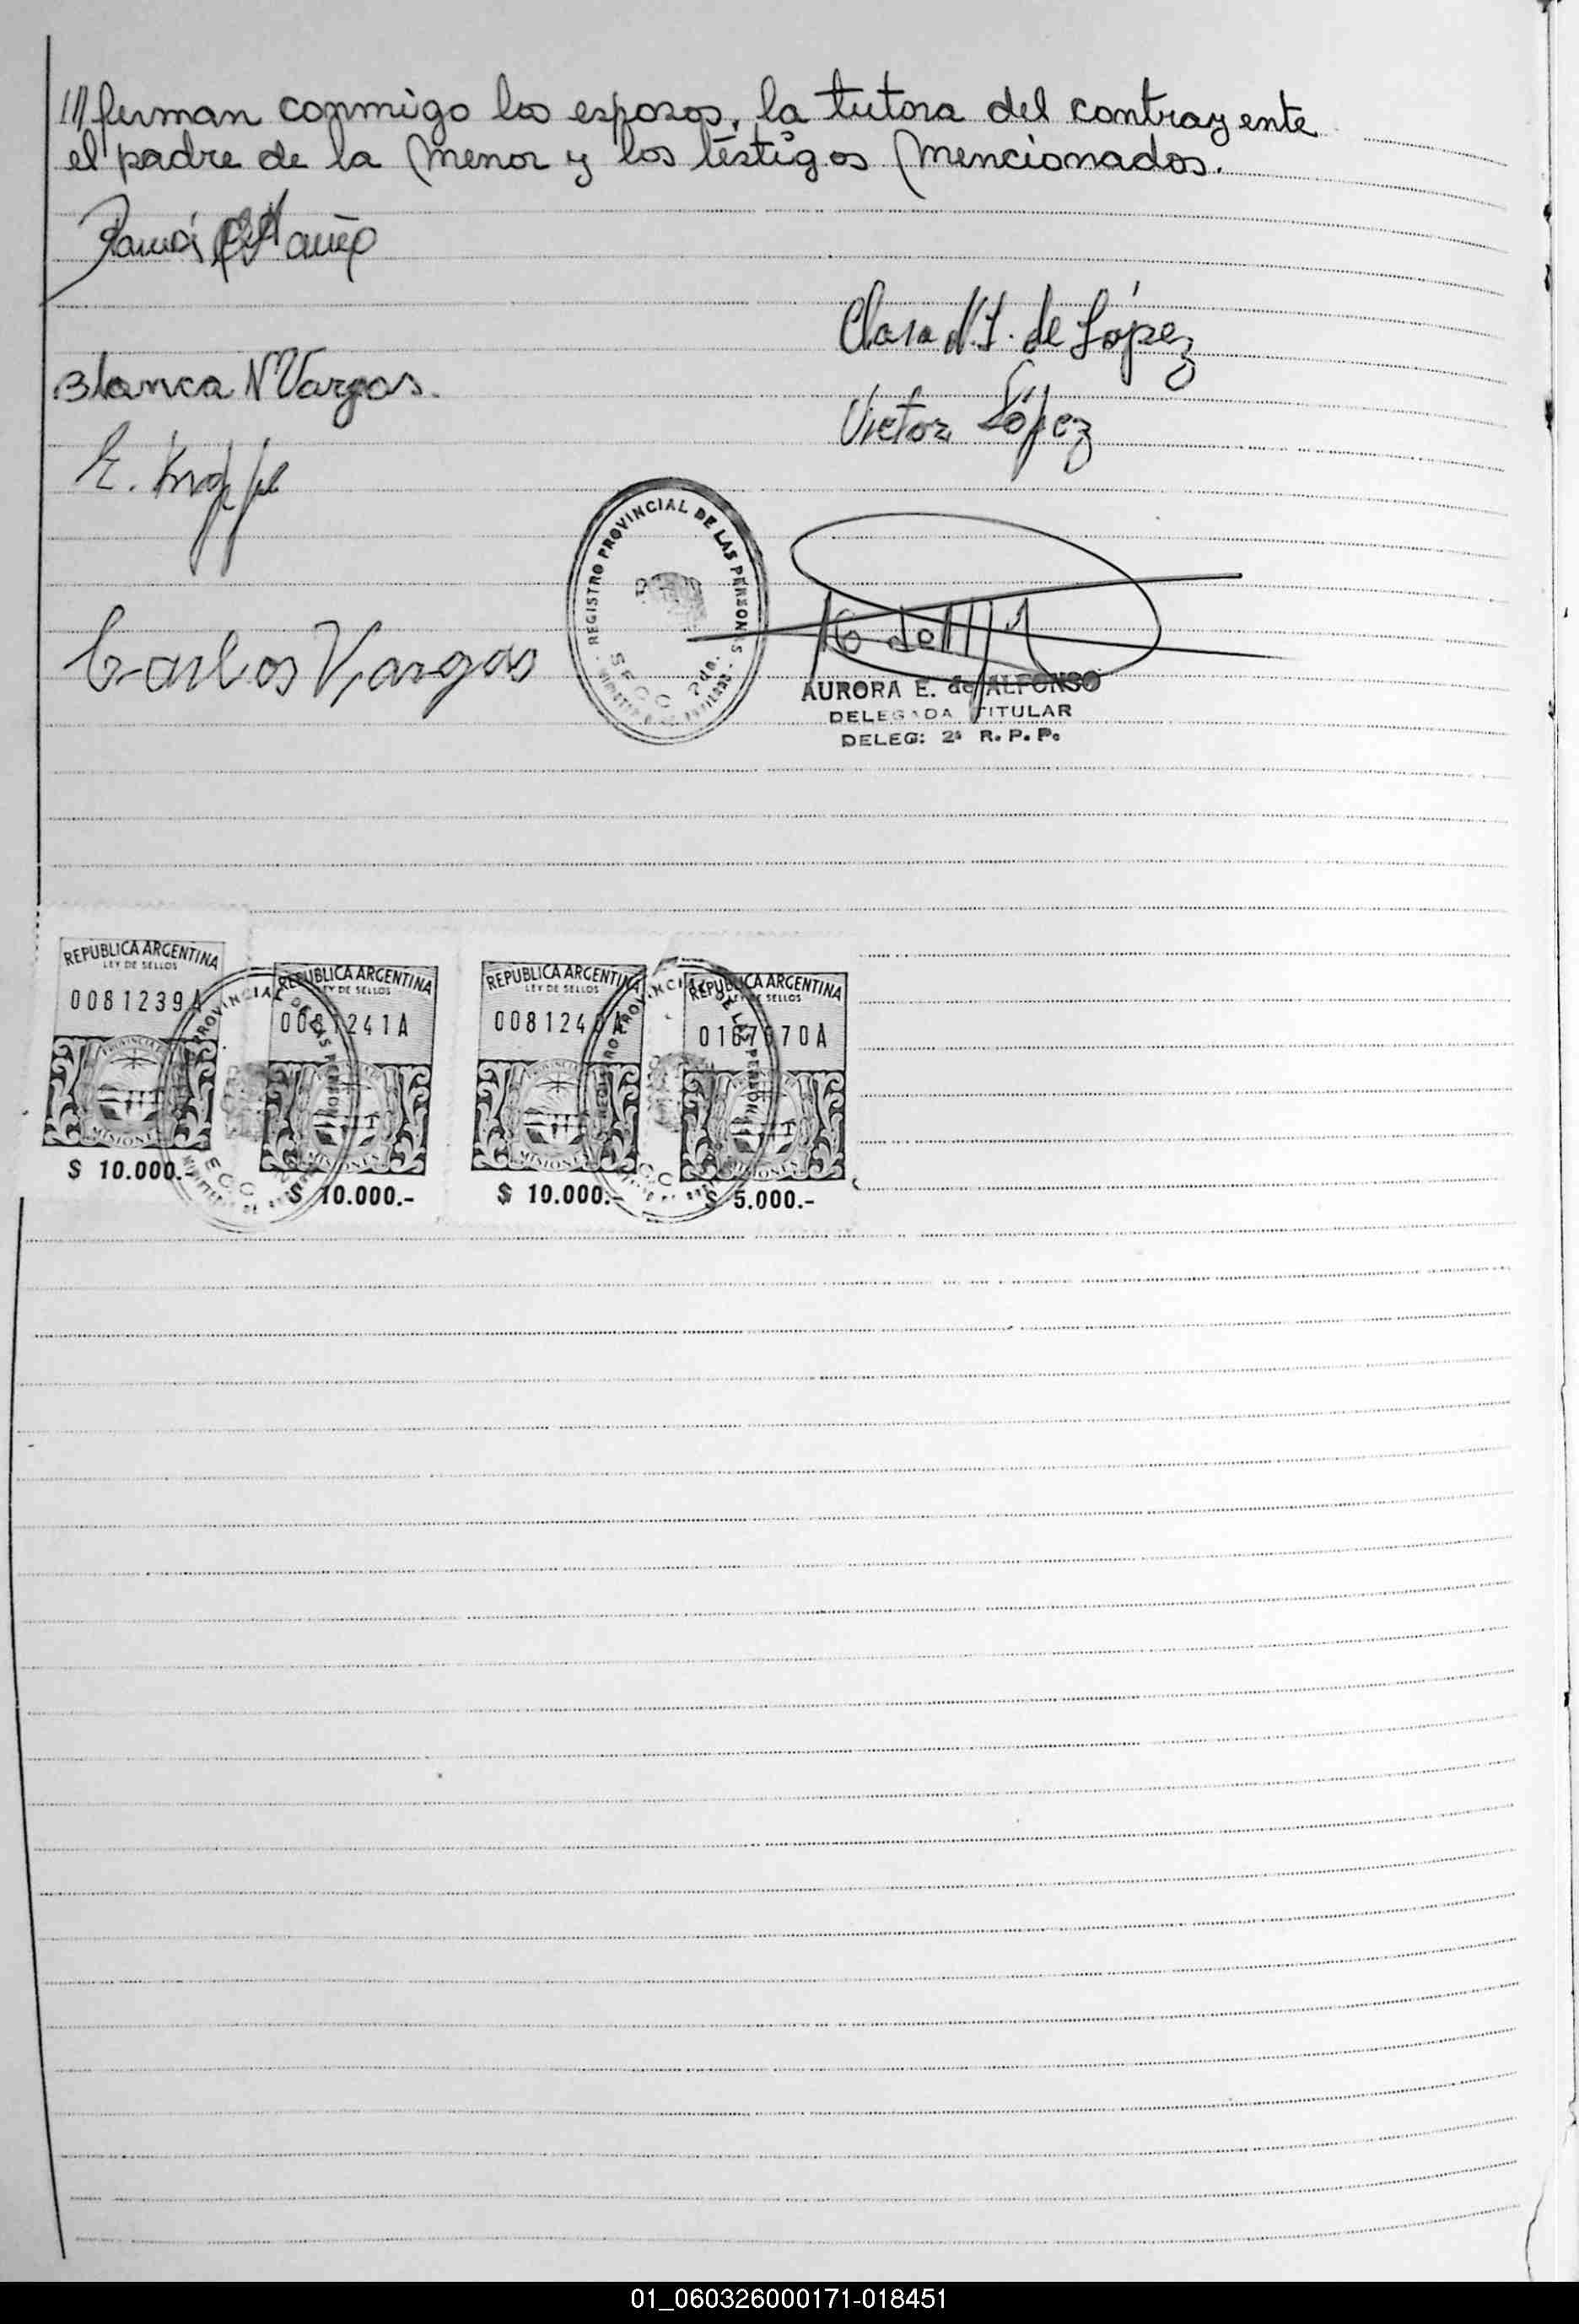 /// firman conmigo los esposos, la tutora del contrayente
el padre de la menor y los testigos mencionados.
Clara N. I. de López
Blanca N Vargas.
Victor López
E.
Carlos Vargas
REGISTRO PROVINCIAL DE LAS PERSONAS
SECC. 2da.
AURORA E. de ALFONSO
DELEGADA TITULAR
DELEG: 2ª R. P. P.
REPUBLICA ARGENTINA
LEY DE SELLOS
0081239A
MISIONES
$ 10.000.-
REPUBLICA ARGENTINA
LEY DE SELLOS
0081241A
MISIONES
$ 10.000.-
REPUBLICA ARGENTINA
LEY DE SELLOS
MISIONES
$ 10.000.-
REPUBLICA ARGENTINA
LEY DE SELLOS
MISIONES
$ 5.000.-
01_060326000171-018451